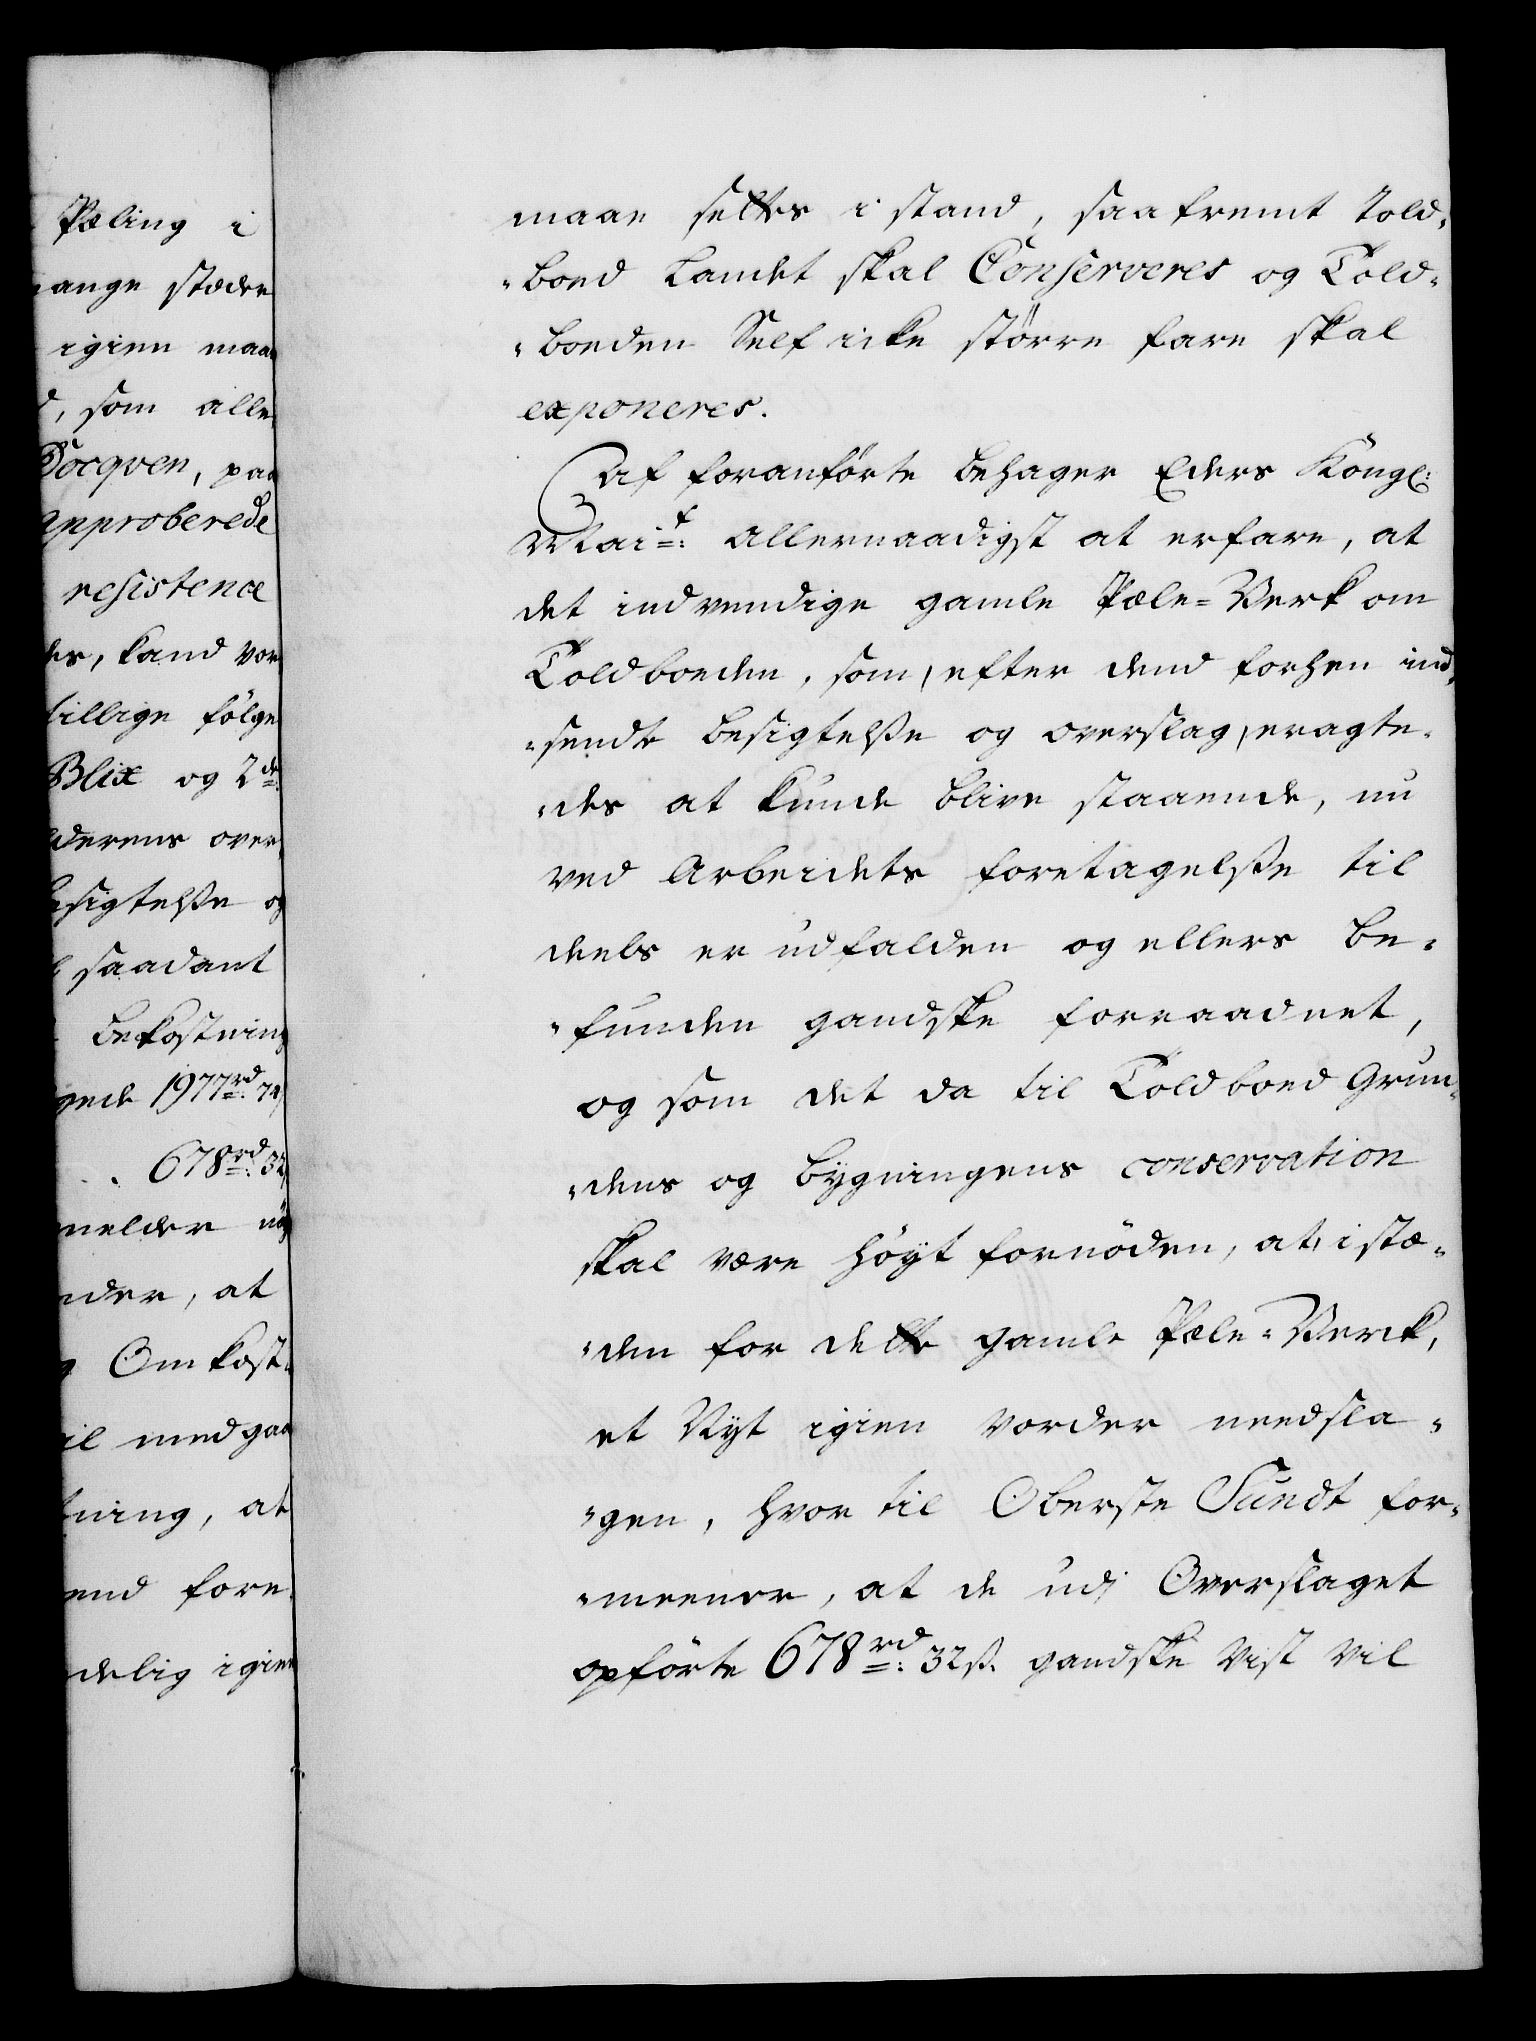 Pæling i
ange stæder
igien maa
, som alle
Docqven, paa
approberede
resistence
des, kand vor
tillige følge
Blix og 2de
derens over
sigtelsse og
saadant
bekostning
gende 1977rd: 72
678rd: 32
melder nø
nder, at
Omkost-
il medgaa
tning, at
end fore
delig igien
maae settes i stand, saafremt Told-
-boed Landet skal Conserveres og Told-
-boeden Self icke større fare skal
exponeres.
Af foranførte behager Eders Köngl:
Mait: allernaadigst at erfare, at
det indvendige gamle Pæle-Verk om
Toldboeden, som, efter dend forhen ind-
-sendte besigtelsse og overslag, eragte-
-des at kunde blive staaende, nu
ved Arbeidets foretagelsse til
deels er udfalden og ellers be-
-funden gandske forraadnet,
og som det da til Toldboed Grun-
-dens og bygningens conservation
skal være høyt fornøden, at, i stæ-
-den for dette gamle Pæle-Verck,
et Nyt igien vorder needsla-
-gen, hvor til Oberste Sundt for-
-meener, at de udj Overslaget
opførte 678rd: 32s. gandske vist vil